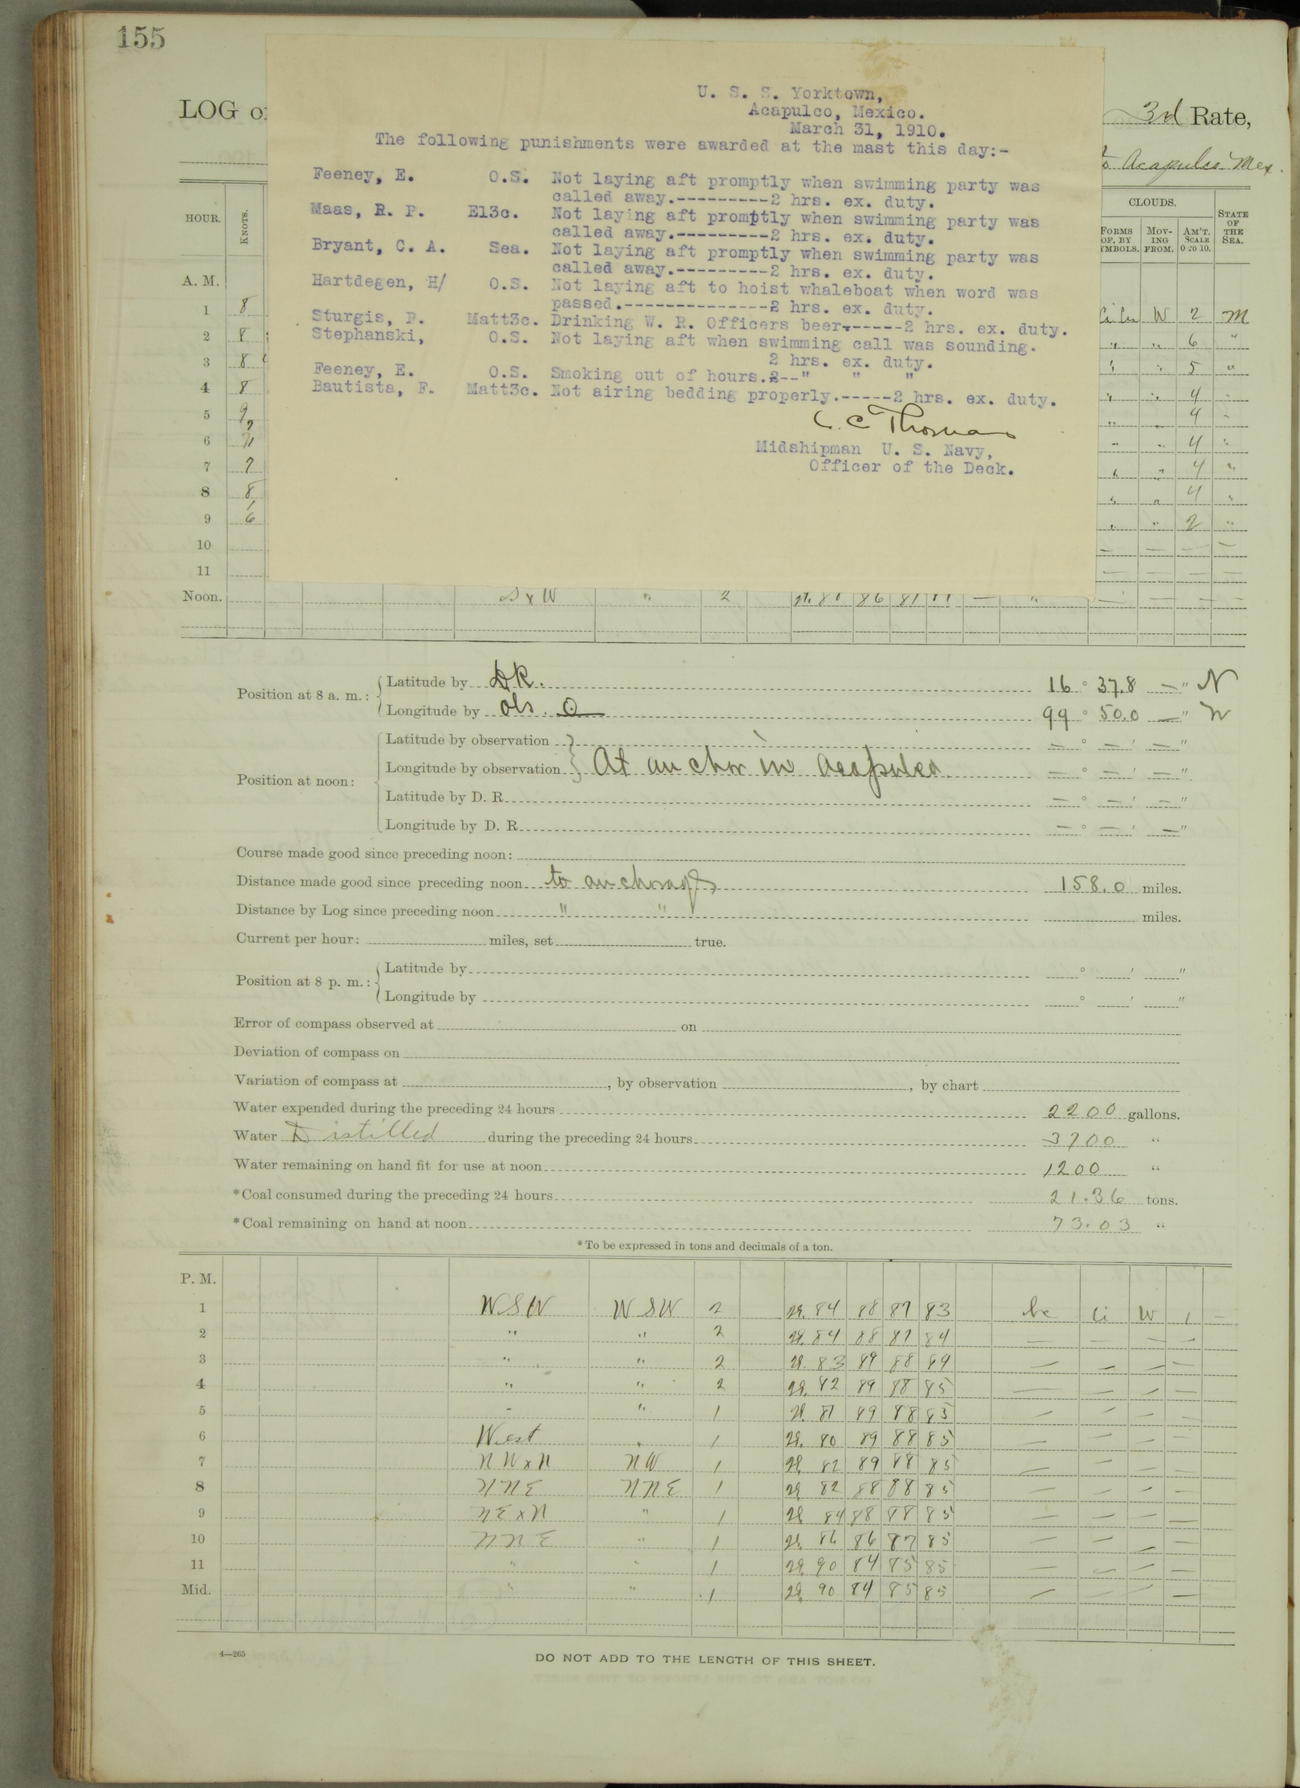 155
LOG of
3rd Rate,
Acapulco Mex.
U. S. S. Yorktown,
Acapulco, Mexico.
March 31, 1910.
The following punishments were awarded at the mast this day:-
Feeney, E. O.S. Not laying aft promptly when swimming party was
called away.---------2 hrs. ex. duty.
Maas, R. P. E13c. Not laying aft promptly when swimming party was
called away.---------2 hrs. ex. duty.
Bryant, C. A. Sea. Not laying aft promptly when swimming party was
called away.---------2 hrs. ex. duty.
Hartdegen, H/ O.S. Not laying aft to hoist whaleboat when word was
passed.--------------2 hrs. ex. duty.
Sturgis, P. Matt3c. Drinking W. R. Officers beer.-----2 hrs. ex. duty.
Stephanski, O.S. Not laying aft when swimming call was sounding.
2 hrs. ex. duty.
Feeney, E. O.S. Smoking out of hours.2--" " "
Bautista, F. Matt3c. Not airing bedding properly.-----2 hrs. ex. duty.
C. C. Thomas
Midshipman U. S. Navy,
Officer of the Deck.
HOUR. KNOTS. CLOUDS. STATE OF THE SEA.
FORMS OF, BY SYMBOLS. MOVING FROM. AM'T. SCALE 0 TO 10.
A. M.
1 8 Ci Cu W 2 M
2 8 " " 6 "
3 8 " " 5 "
4 8 " " 4 "
5 " " 4 "
6 " " 4 "
7 7 " " 4 "
8 8 " " 4 "
9 6 " " 2 "
10 — — — —
11 — — — —
Noon. S x W " 2 86 — " — — — —
Position at 8 a. m.: Latitude by DR. 16 ° 37.8 — " N
Longitude by Obs. ⊙ 99 ° 50.0 — " W
Position at noon: Latitude by observation — ° — ' — "
Longitude by observation At anchor in Acapulco — ° — ' — "
Latitude by D. R. — ° — ' — "
Longitude by D. R. — ° — ' — "
Course made good since preceding noon:
Distance made good since preceding noon to anchorage 158.0 miles.
Distance by Log since preceding noon " " miles.
Current per hour: miles, set true.
Position at 8 p. m.: Latitude by ° ' "
Longitude by ° ' "
Error of compass observed at on
Deviation of compass on
Variation of compass at , by observation , by chart
Water expended during the preceding 24 hours 2200 gallons.
Water Distilled during the preceding 24 hours 3700 "
Water remaining on hand fit for use at noon 1200 "
*Coal consumed during the preceding 24 hours 21.36 tons.
*Coal remaining on hand at noon 73.03 "
*To be expressed in tons and decimals of a ton.
P. M.
1 WSW WSW 2 29. 84 88 87 83 bc Ci W 1 —
2 " " 2 29. 84 88 87 84 — — — —
3 " " 2 29. 83 89 88 84 — — — —
4 " " 2 29. 82 89 88 85 — — — —
5 " " 1 29. 81 89 88 85 — — — —
6 West " 1 29. 80 89 88 85 — — — —
7 NWxN NW 1 29. 82 89 88 85 — — — —
8 NNE NNE 1 29. 82 88 88 85 — — — —
9 NExN " 1 29. 84 88 88 85 — — — —
10 NNE " 1 29. 86 86 87 85 — — — —
11 " " 1 29. 90 84 85 85 — — — —
Mid. " " 1 29. 90 84 85 85 — — — —
4—265
DO NOT ADD TO THE LENGTH OF THIS SHEET.